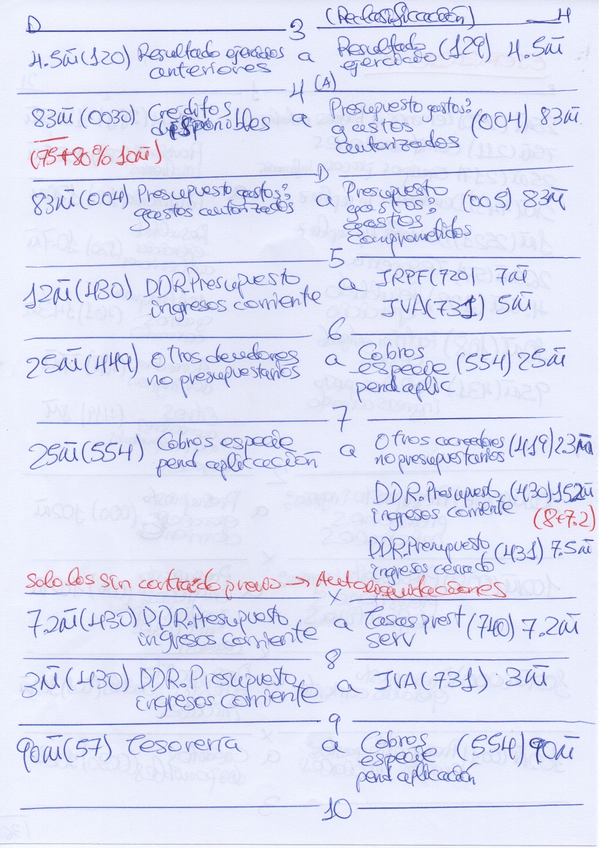 D 3 (Reclasificación) H
4.5m̄ (120) Resultado ejercicios anteriores a Resultado ejercicio (129) 4.5m̄
4 (A)
83m̄ (0030) Creditos disponibles a Presupuesto gastos: gastos autorizados (004) 83m̄
(75+80% 10m̄)
D
83m̄ (004) Presupuesto gastos: gastos autorizados a Presupuesto gastos: gastos comprometidos (005) 83m̄
5
12m̄ (430) DDR. Presupuesto ingresos corriente a IRPF (720) 7m̄
IVA (731) 5m̄
6
25m̄ (449) Otros deudores no presupuestarios a Cobros especie pend aplic (554) 25m̄
7
25m̄ (554) Cobros especie pend aplicación a Otros acreedores no presupuestarios (419) 2.3m̄
DDR. Presupuesto ingresos corriente (430) 15.2m̄
(8+7.2)
DDR. Presupuesto ingresos cerrado (431) 7.5m̄
Solo los sin contraido previo → Autoliquidaciones
x
7.2m̄ (430) DDR. Presupuesto ingresos corriente a Tasas prest serv (740) 7.2m̄
8
3m̄ (430) DDR. Presupuesto ingresos corriente a IVA (731) 3m̄
9
90m̄ (57) Tesorería a Cobros especie pend aplicación (554) 90m̄
10